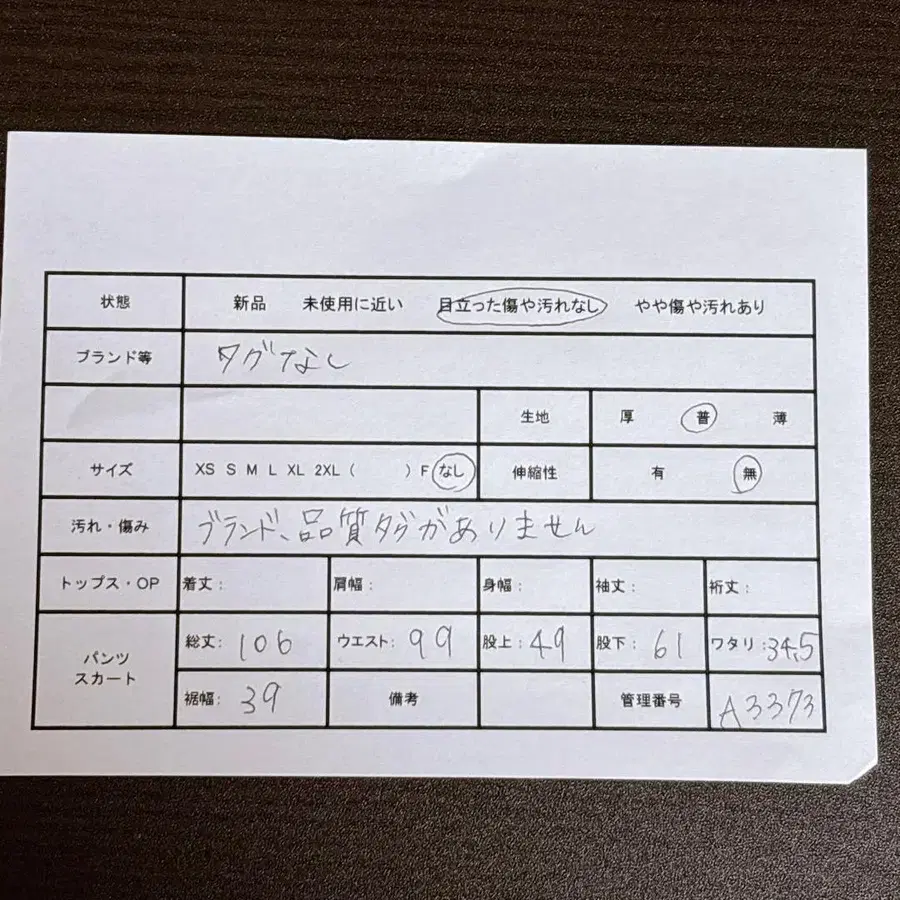 状態 新品 未使用に近い 目立った傷や汚れなし やや傷や汚れあり
ブランド等 タグなし
生地 厚 普 薄
サイズ XS S M L XL 2XL ( ) F なし 伸縮性 有 無
汚れ・傷み ブランド、品質タグがありません
トップス・OP 着丈: 肩幅: 身幅: 袖丈: 裄丈:
パンツ スカート 総丈: 106 ウエスト: 99 股上: 49 股下: 61 ワタリ: 34.5
裾幅: 39 備考 管理番号 A3373